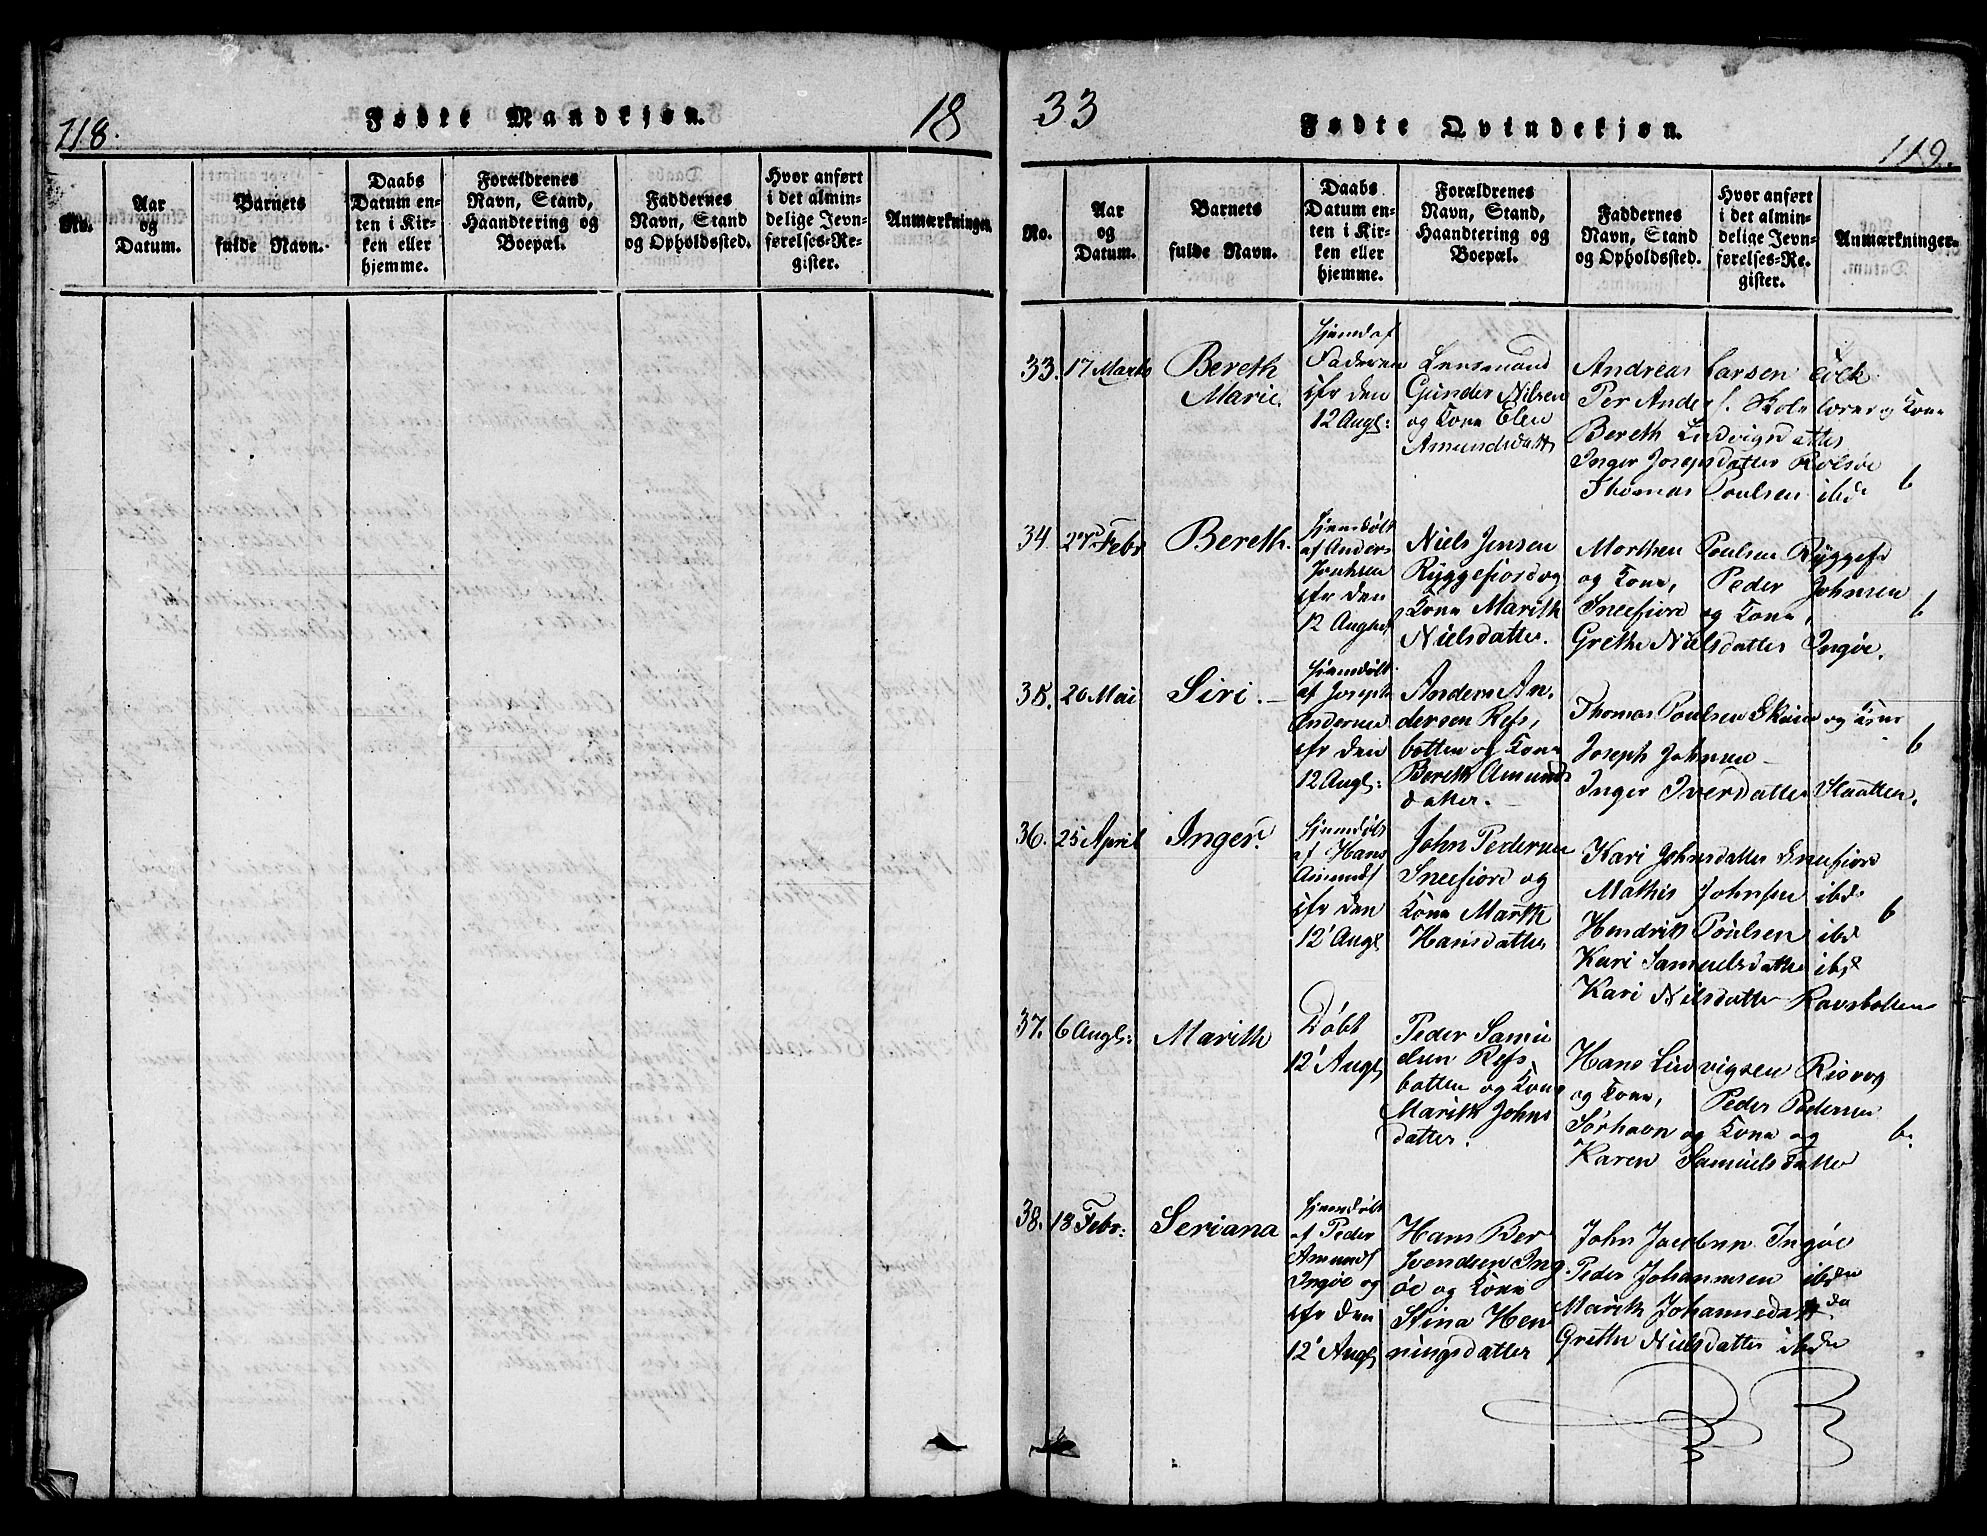 118.
Fødte Mandkjøn.
18
No.
Aar
og
Datum.
Barnets
fulde Navn.
Daabs
Datum en-
ten i Kir-
ken eller
hjemme.
Forældrenes
Navn, Stand,
Haandtering og
Boepæl.
Faddernes
Navn, Stand
og Opholdssted.
Hvor anført
i det almin-
delige Jevn-
førelses-Re-
gister.
Anmærkninger.
33
Fødte Qvindekjøn.
119.
No.
Aar
og
Datum.
Barnets
fulde Navn.
Daabs
Datum en-
ten i Kir-
ken eller
hjemme.
Forældrenes
Navn, Stand,
Haandtering og
Boepæl.
Faddernes
Navn, Stand
og Opholdssted.
Hvor anført
i det almin-
delige Jevn-
førelses-Re-
gister.
Anmærkninger.
33. 17 Marts
Bereth
Marie.
hjemd af
Faderen
ifr den
12 Augs:
Lensmand
Gunder Nilsen
og Kone Elen
Amundsdatt
Andreas Larsen Eöck
Per Anders. Skolelærer og Kone
Bereth Ludvigsdatter
Inger Josepsdatter Rolsöe
Thomas Poulsen ibd
6
34 27 Febr
Bereth.
hjemdøbt
af Anders
ifr den
12 August
Niels Jensen
Ryggefiord og
Kone Marith
Nielsdatter.
Morthen Poulsen Ryggefd
og Kone, Peder Johnsen
Sneefiord og Kone,
Grethe Nielsdatter Ingøe.
6
35. 20 Mai
Siri.
hjemdøbt
af Joseph
Andersen
ifr den
12 Augs:
Anders An-
dersen Refs-
botten og Kone
Bereth Amunds
datter.
Thomas Poulsen og Kone
Joseph Johnsen
Inger Iversdatter Slaatten.
6
36. 25 April
Inger.
hjemdøbt
af Hans
Amunds
ifr den
12' Augs
John Pedersen
Sneefiord og
Kone Marith
Hansdatter
Kari Johnsdatter Sneefiord
Mathis Johnsen ibd
Hendrik Poulsen ibd
Kari Samuelsdatter ibd
Kari Nilsdatter Ravsbotten
6
37. 6 Augs:
Marith
Døbt
12' Augs
Peder Samu
elsen Refs
botten og Kone
Marith Johns
datter.
Hans Ludvigsen Risvog
og Kone, Peder Pedersen
Sørhavn og Kone og
Karen Samuels Datter
6.
38. 13 Febr:
Seriana
hjemdøbt
af Peder
Amunds
Ingøe og
ifr den
12' Augs
Hans Ber
Svendsen Ing
øe og Kone
Stina Hen
ningsdatter
John Jacobsen Ingøe
Peder Johannesen ibden
Marith Johannesdatter do
Grethe Nielsdatter ibden